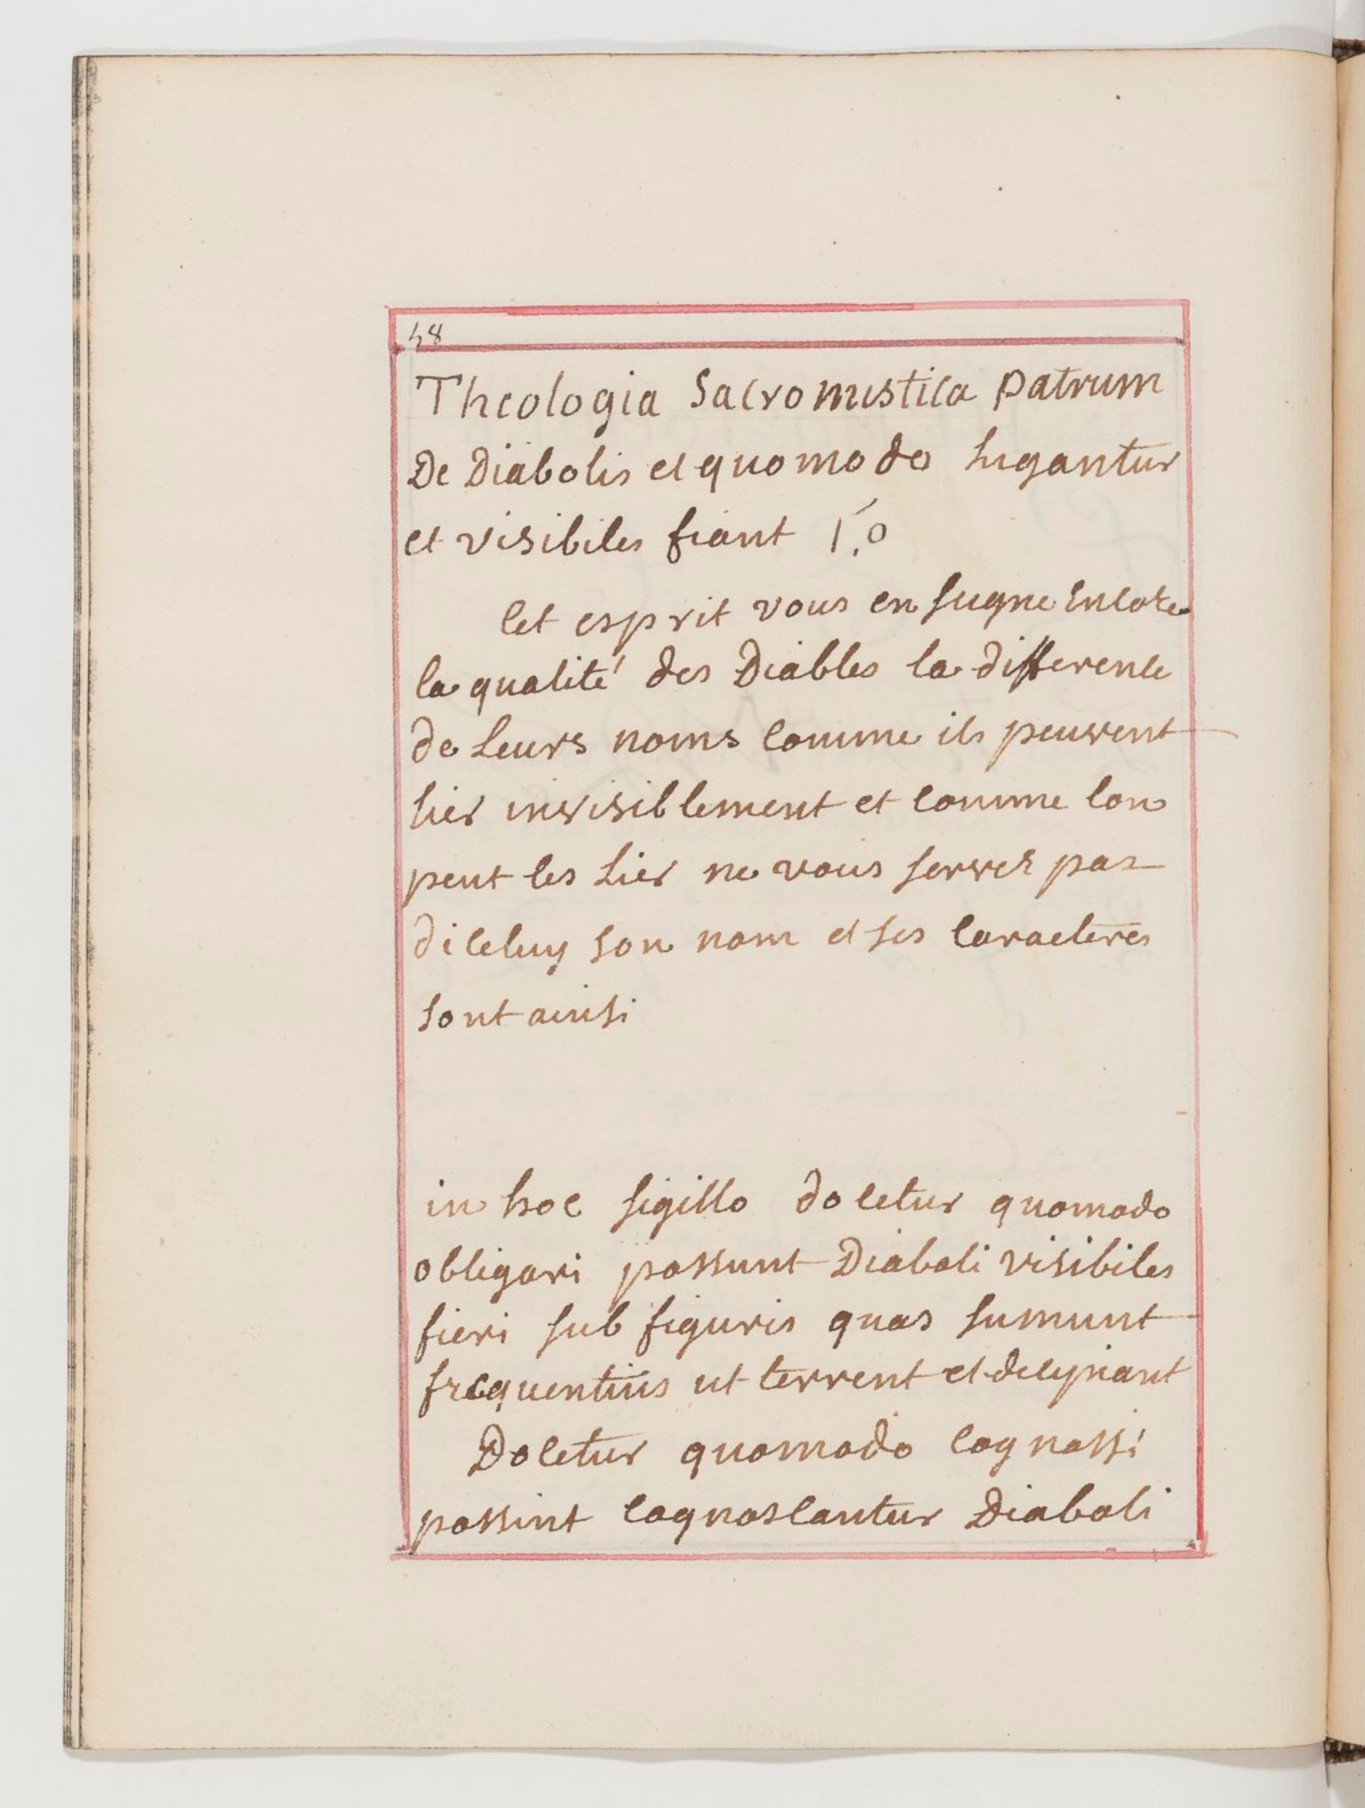 48
Theologia Sacromistica patrum
De Diabolis et quomodo Ligantur
et visibiles fiant 1.o
Cet esprit vous enseigne Encore
la qualité des Diables la difference
de Leurs noms comme ils peuvent
lier invisiblement et comme lon
peut les Lier ne vous servez pas
diceluy son nom et ses caracteres
sont ainsi
in hoc sigillo docetur quomodo
obligari possunt Diaboli visibiles
fieri sub figuris quas sumunt
frequentius ut terrent et decipiant
Docetur quomodo cognossi
possint cognoscantur Diaboli